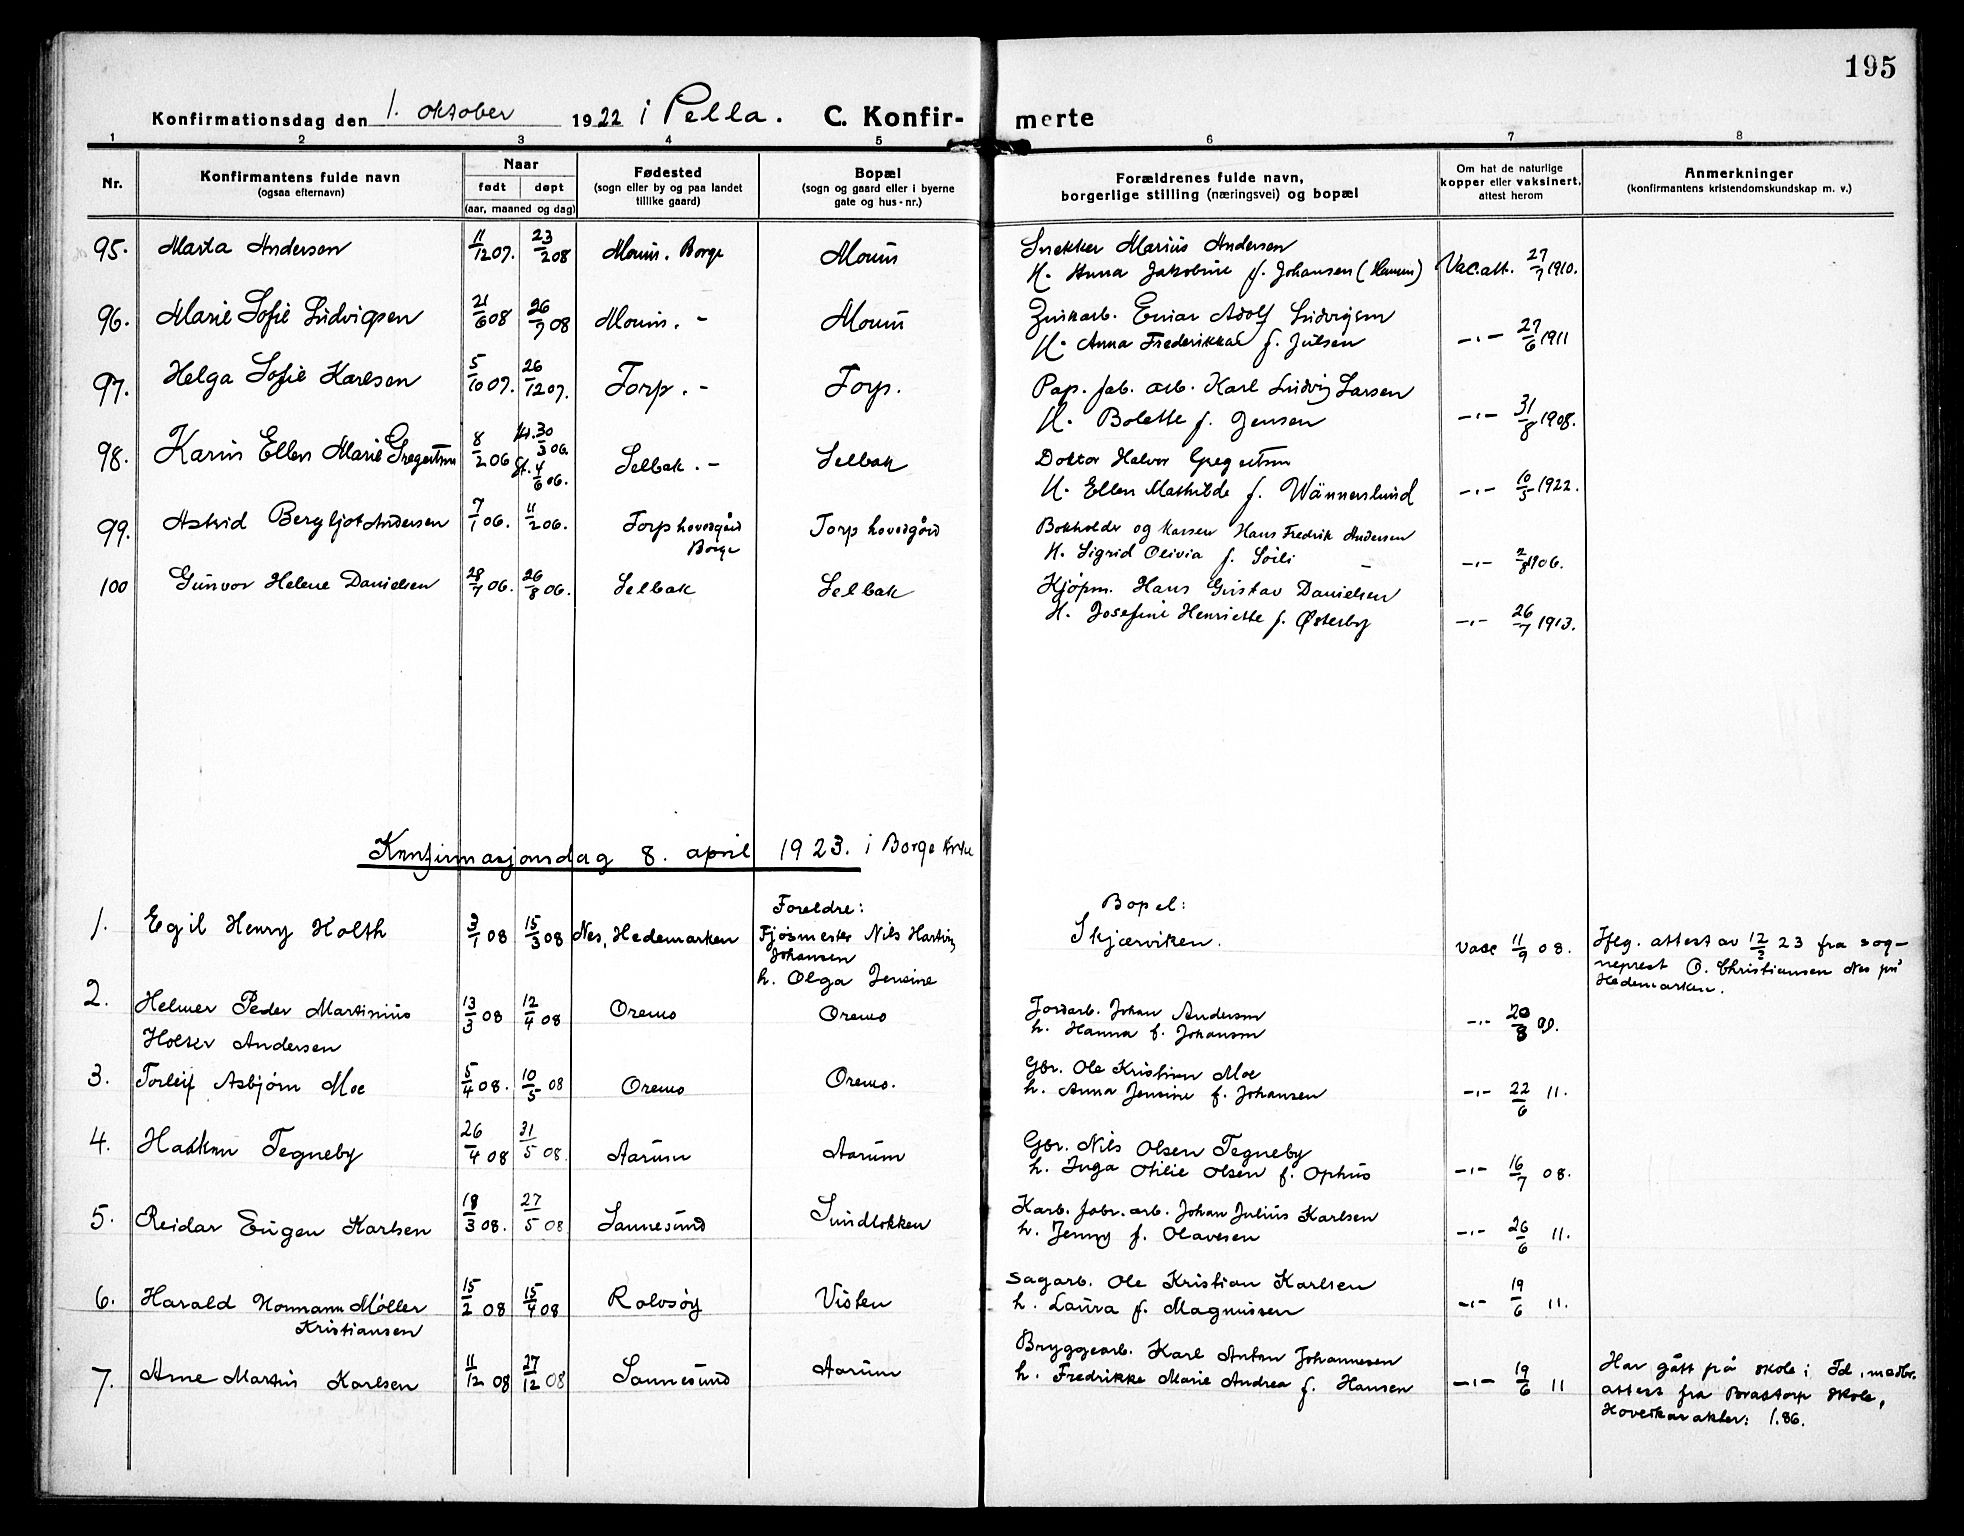 195
Konfirmationsdag den 1. oktober 1922 i Pella. C. Konfir- merte
1 2 3 4 5 6 7 8
Nr.
Konfirmantens fulde navn
(ogsaa efternavn)
Naar
født døpt
(aar, maaned og dag)
Fødested
(sogn eller by og paa landet
tillike gaard)
Bopæl
(sogn og gaard eller i byerne
gate og hus-nr.)
Forældrenes fulde navn,
borgerlige stilling (næringsvei) og bopæl
Om hat de naturlige
kopper eller vaksinert,
attest herom
Anmerkninger
(konfirmantens kristendomskundskap m. v.)
95. Marta Andersen 11/12 07. 23/2 08 Moum. Borge Moum Snekker Marius Andersen
H. Anna Jakobine f. Johansen (Hansen) Vac.att. 27/7 1910.
96. Marie Sofie Ludvigsen 21/6 08 26/7 08 Moum. - Moum Zinkarb. Einar Adolf Ludvigsen
H. Anna Frederikka f. Julsen -"- 27/6 1911
97. Helga Sofie Karlsen 5/10 07. 26/12 07. Torp. - Torp. Pap. fab. arb. Karl Ludvig Larsen
H. Bolette f. Jensen -"- 31/8 1908.
98. Karin Ellen Marie Gregertsen 8/2 06 30/3 06. 4/6 06. Selbak. - Selbak Doktor Halvor Gregertsen
H. Ellen Mathilde f. Wännerslund -"- 10/5 1922.
99. Astrid Bergljot Andersen 7/1 06. 11/2 06. Torp hovedgård
Borge Torp hovedgård Bokholder og kasser Hans Fredrik Andersen
H. Sigrid Olivia f. Søili -"- 1906.
100 Gunvor Helene Danielsen 28/7 06. 26/8 06. Selbak Selbak Kjøpm. Hans Gustav Danielsen
H. Josefine Henriette f. Østerby -"- 26/7 1913.
Konfirmasjonsdag 8. april 1923. i Borge kirke
Foreldre: Bopel:
1. Egil Henry Holth 3/1 08 15/3 08 Nes, Hedemarken Fjøsmester Nils Hartvig
Johansen
h. Olga Jensine Skjærviken. Vacc 11/9 08. Iflg. attest av 12/2 23 fra sog-
neprest O. Christiansen Nes på
Hedemarken.
2. Helmer Peder Martinius
Holter Andersen 13/3 08 12/4 08 Oremo Oremo Jordarb. Johan Andersen
h. Hanna f. Johansen -"- 20/8 09.
3. Torleif Asbjørn Moe 5/4 08. 10/5 08 Oremo Oremo. Gbr. Ole Kristian Moe
h. Anna Jensine f. Johansen -"- 22/6 11.
4. Haakon Tegneby 26/4 08 31/5 08. Aarum Aarum Gbr. Nils Olsen Tegneby
h. Inga Otilie Olsen f. Ophus -"- 16/7 08.
5. Reidar Eugen Karlsen 18/3 08. 27/5 08 Sannesund Sundløkken Karb. fabr. arb. Johan Julius Karlsen
h. Jenny f. Olavesen -"- 26/6 11.
6. Harald Normann Møller
Kristiansen 15/2 08 15/4 08 Rolvsøy Visten Sagarb. Ole Kristian Karlsen
h. Laura f. Magnussen -"- 19/6 11.
7. Arne Martin Karlsen 11/12 08 27/12 08 Sannesund Aarum Bryggearb. Karl Anton Johannesen
h. Fredrikke Marie Andrea f. Hansen -"- 19/6 11 Har gått på skole i Id, medbr.
attest fra Brastorp skole,
Hovedkarakter: 1.86.